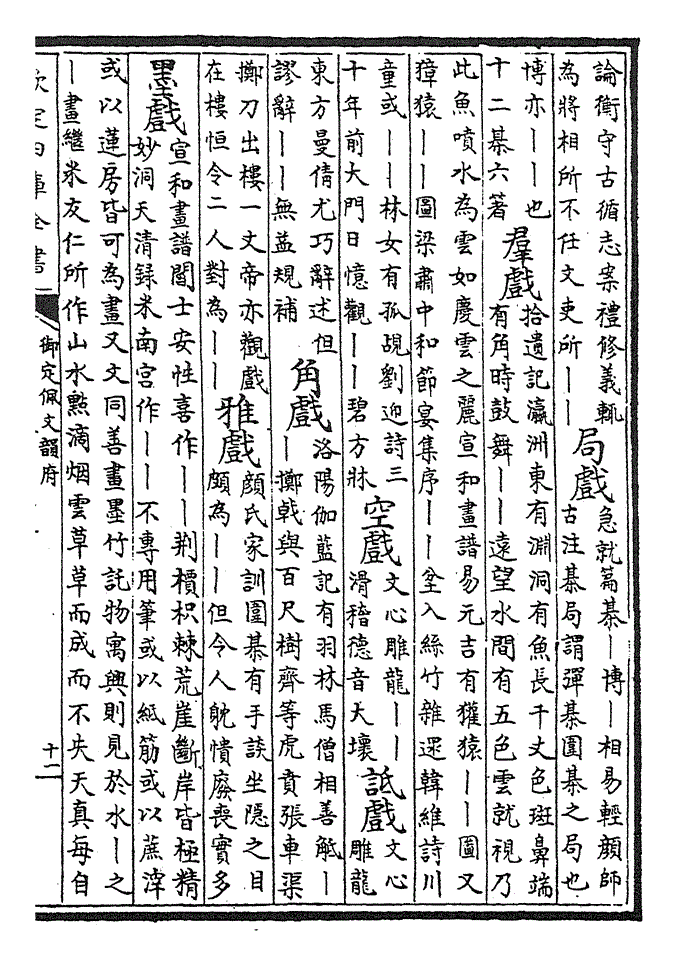 論衡守古循志案禮修義輒
為將相所不任文吏所丨丨
局戲
急就篇棊丨博丨相易輕顔師
古注棊局謂彈棊圍棊之局也
博亦丨丨也
十二棊六著
羣戲
拾遺記瀛洲東有淵洞有魚長千丈色斑鼻端
有角時鼓舞丨丨遠望水間有五色雲就視乃
此魚噴水為雲如慶雲之麗宣和畫譜易元吉有獾猿丨丨圖又
獐猿丨丨圖梁肅中和節宴集序丨丨坌入絲竹雜遝韓維詩川
童或丨丨林女有孤覘劉迎詩三
十年前大門日憶觀丨丨碧方牀
空戲
文心雕龍丨丨
滑稽德音大壞
詆戲
文心
雕龍
東方曼倩尤巧辭述但
謬辭丨丨無益規補
角戲
洛陽伽藍記有羽林馬僧相善觝丨
丨擲戟與百尺樹齊等虎賁張車渠
擲刀出樓一丈帝亦觀戲
在樓恒令二人對為丨丨
雅戲
顔氏家訓圍棊有手談坐隱之目
頗為丨丨但令人躭憒廢喪實多
墨戲
宣和畫譜閻士安性喜作丨丨荆檟枳棘荒崖斷岸皆極精
妙洞天清録米南宮作丨丨不專用筆或以紙筋或以蔗滓
或以蓮房皆可為畫又文同善畫墨竹託物寓興則見於水丨之
丨畫繼米友仁所作山水㸃滴烟雲草草而成而不失天真每自
欽定四庫全書
御定佩文韻府
十二